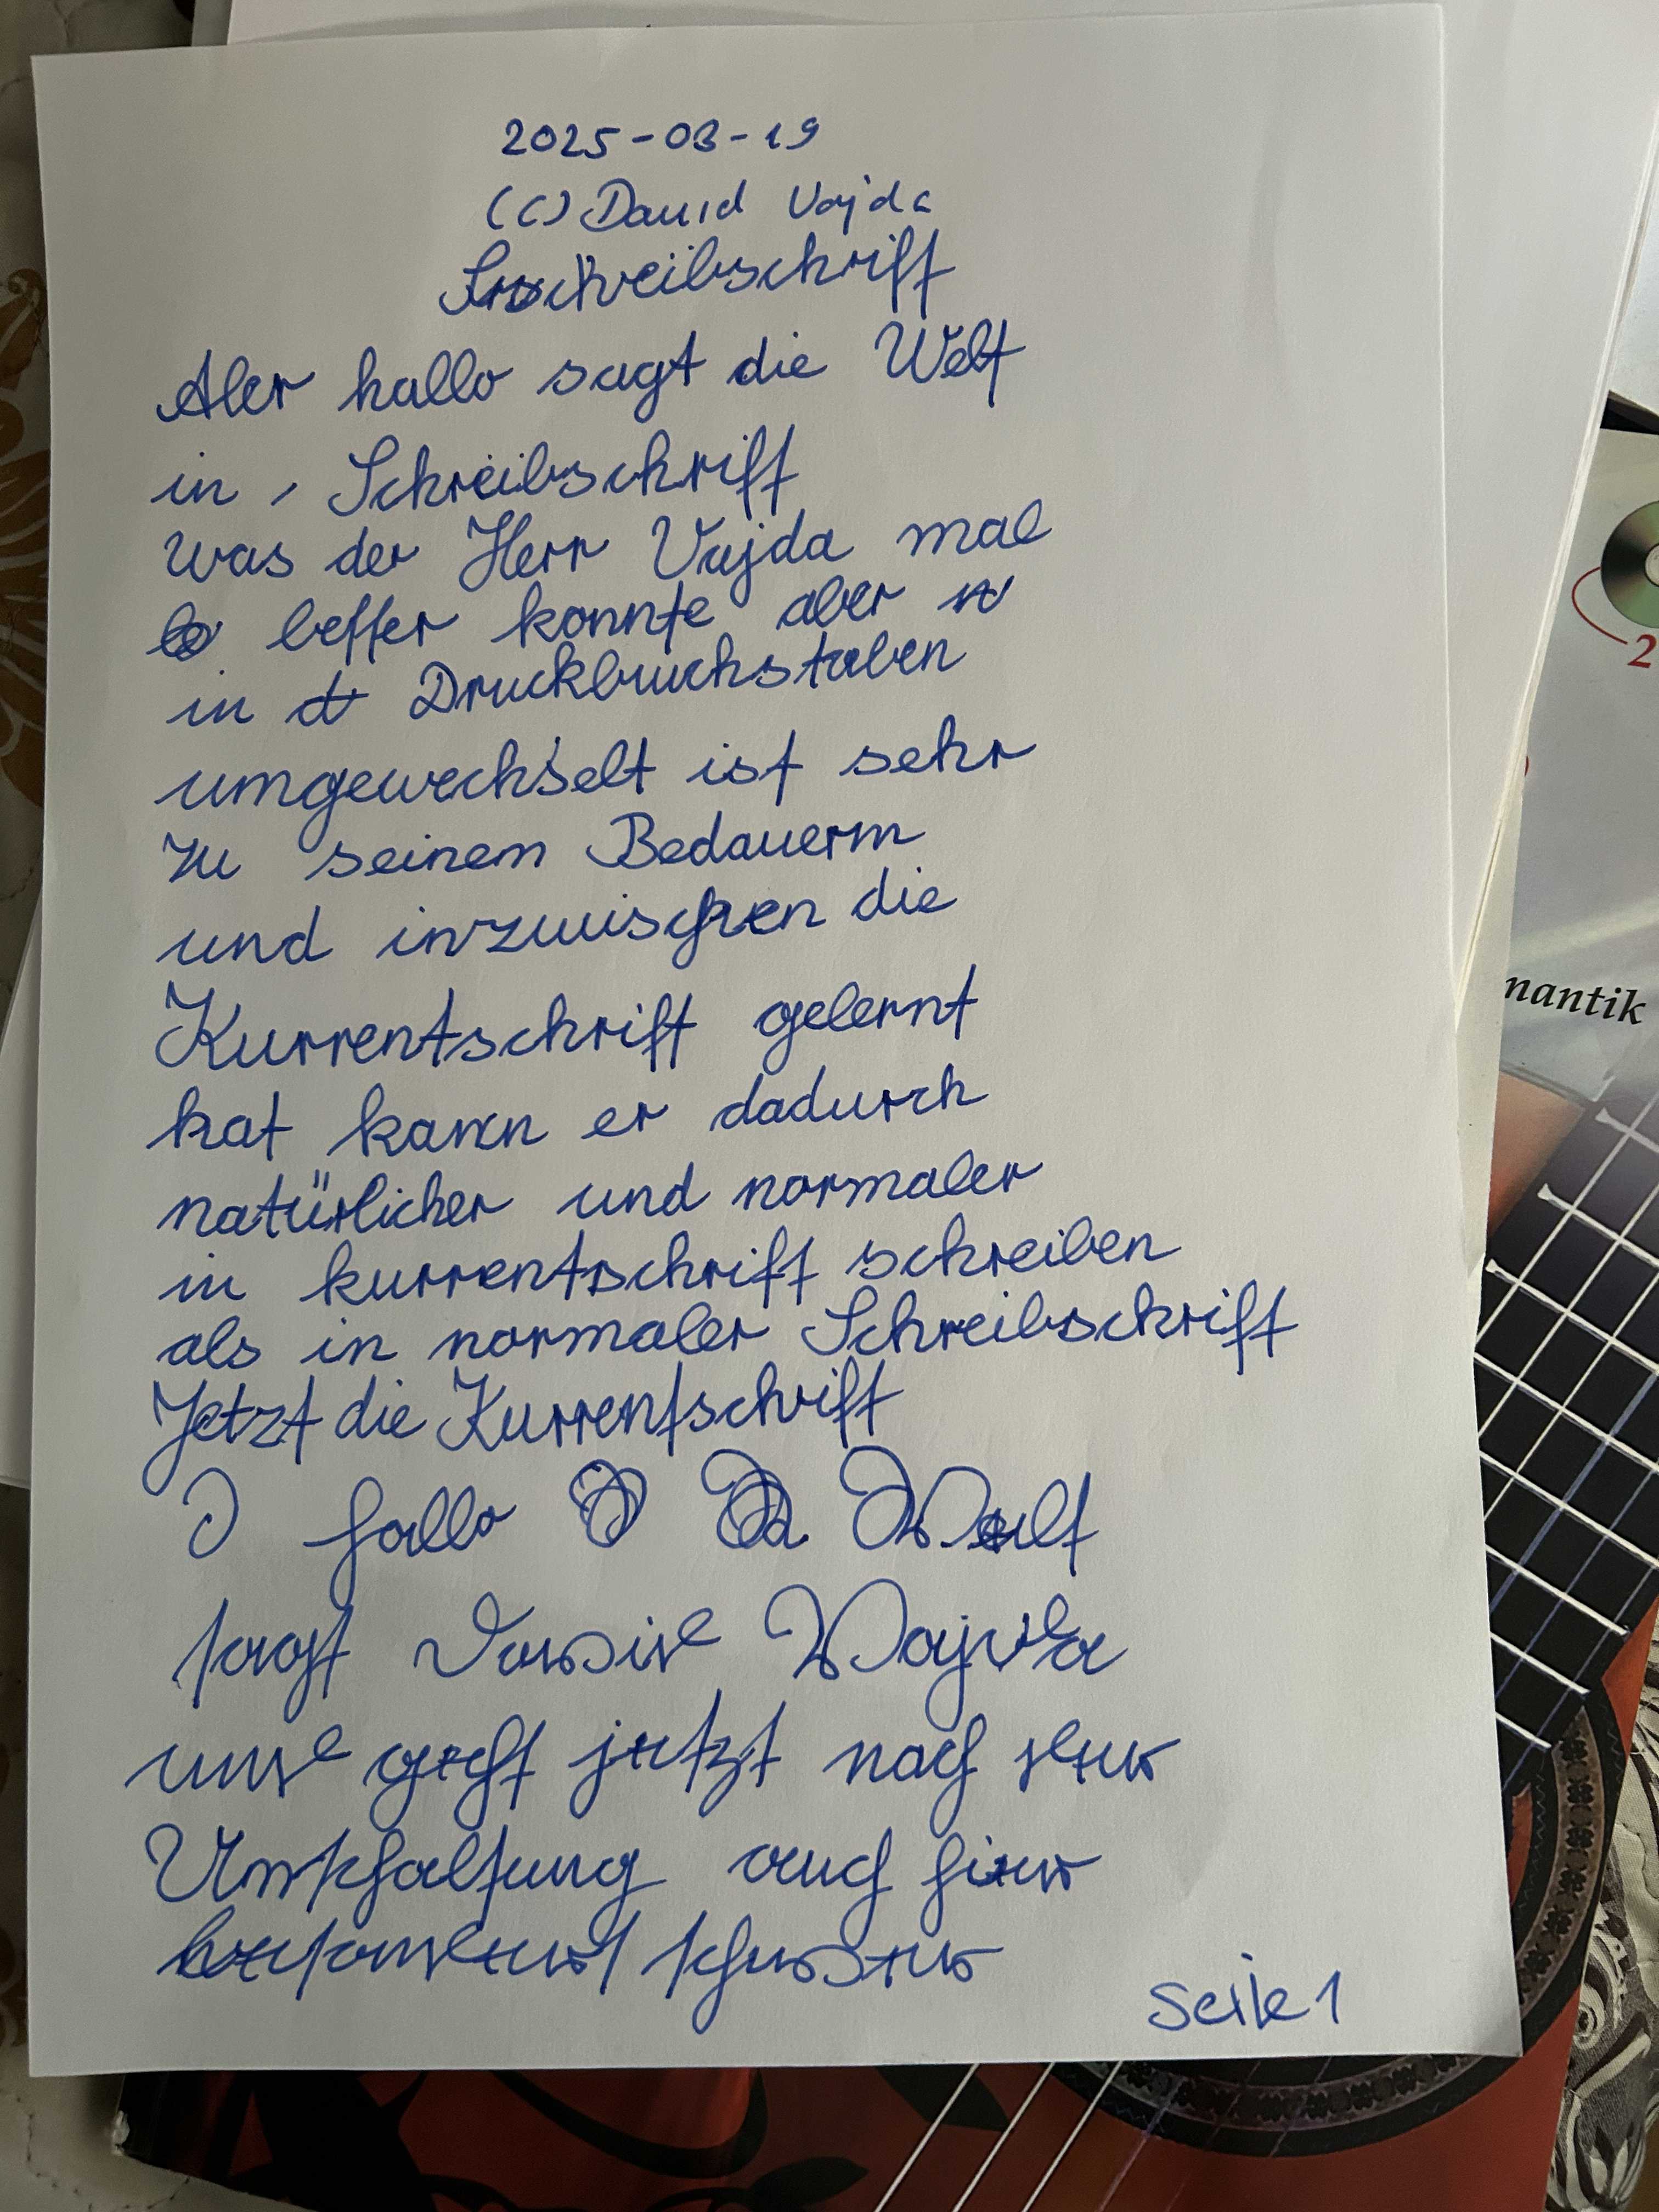 2025-03-19
(C) David Vajda
Schreibschrift
Aber hallo sagt die Welt
in, Schreibschrift
was der Herr Vajda mal
besser konnte aber
in Druckbuchstaben
umgewechselt ist sehr
zu seinem Bedauerm
und inzwischen die
Kurrentschrift gelernt
hat kann er dadurch
natürlicher und normaler
in kurrentschrift schreiben
als in normaler Schreibschrift
Jetzt die Kurrentschrift
hallo Welt
sagt David Vajda
und geht jetzt nach der
Umschaltung auch hier
schreiben
Seite 1
2
mantik